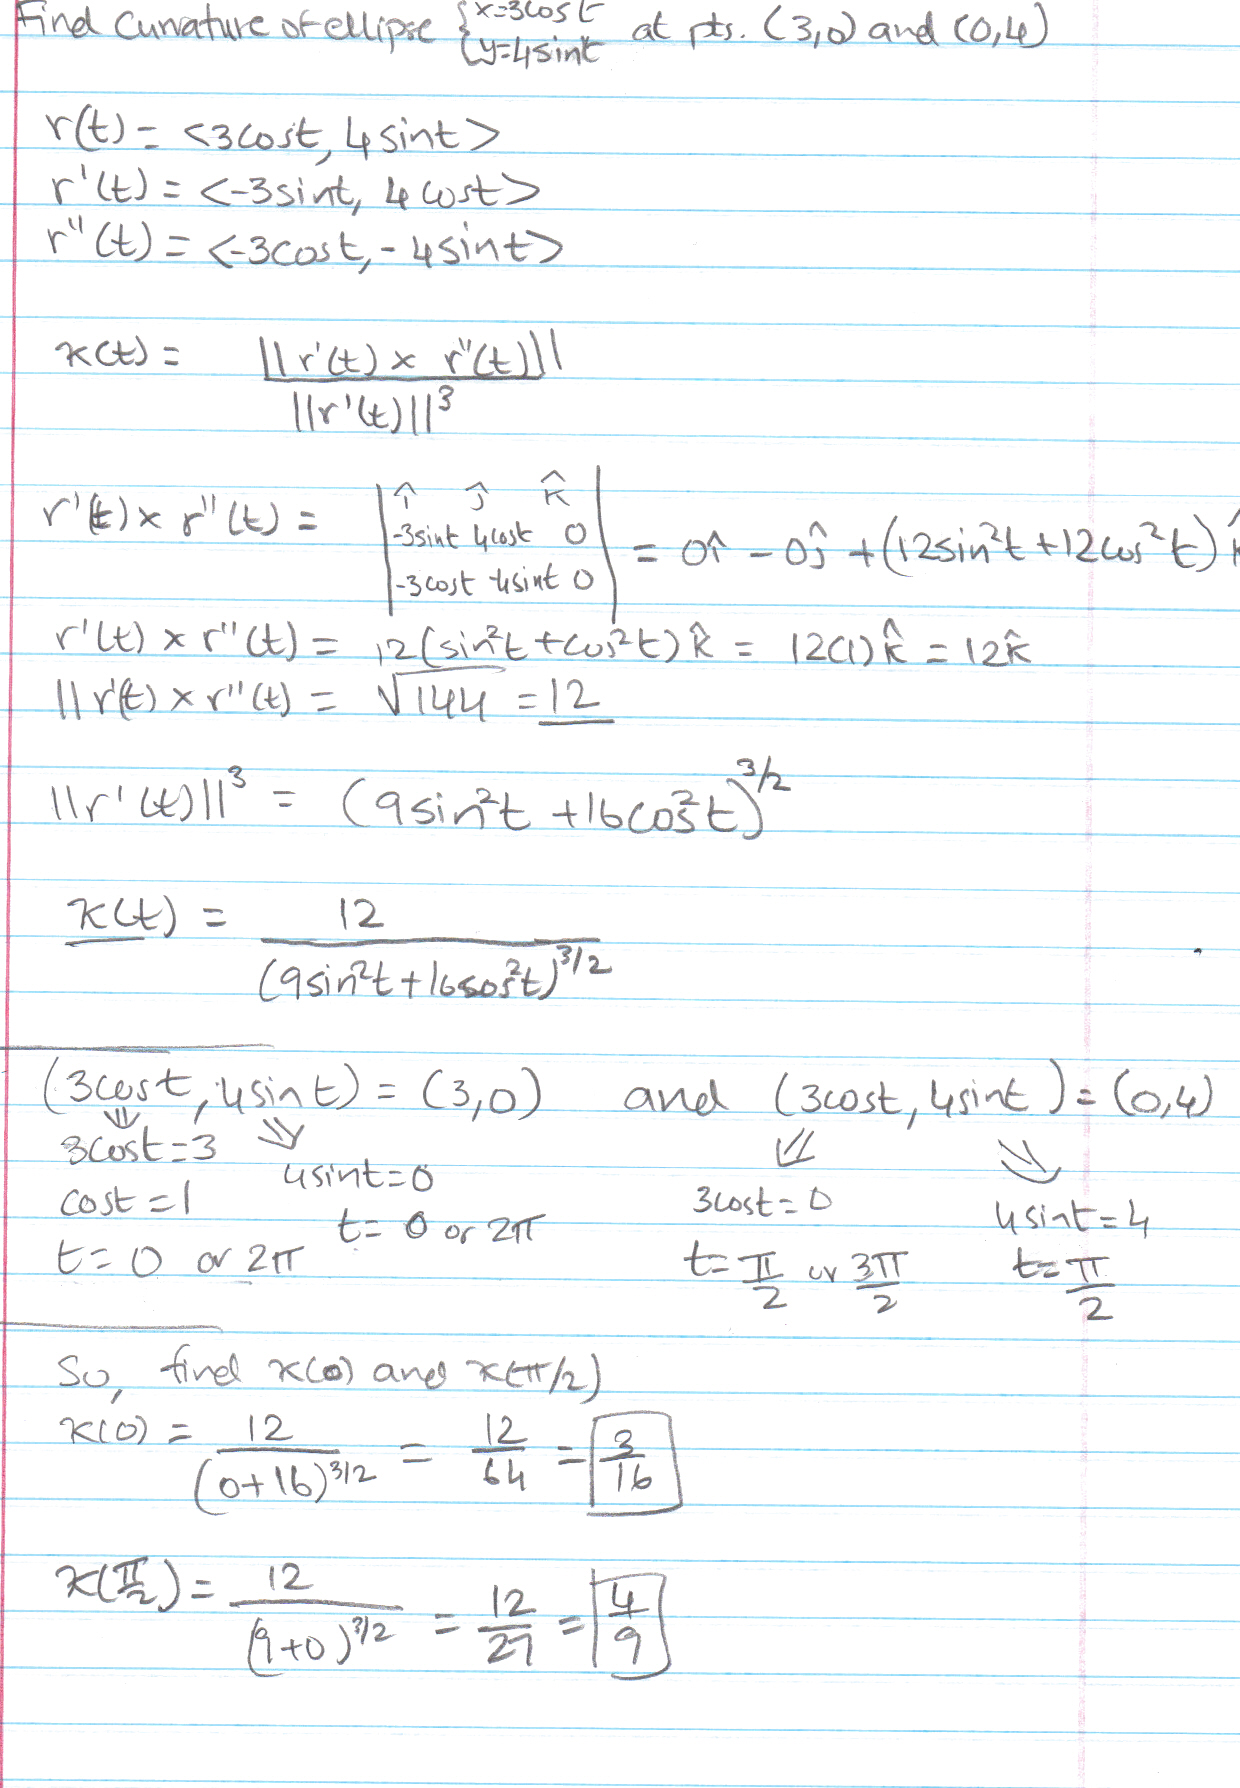 Find Curvature of ellipse { x=3cost y=4sint at pts. (3,0) and (0,4)
r(t) = <3cost, 4sint>
r'(t) = <-3sint, 4cost>
r''(t) = <-3cost, -4sint>
κ(t) = ||r'(t) × r''(t)|| / ||r'(t)||³
r'(t) × r''(t) = | î ĵ k̂ | -3sint 4cost 0 | -3cost -4sint 0 | = 0î - 0ĵ + (12sin²t + 12cos²t) k̂
r'(t) × r''(t) = 12(sin²t + cos²t) k̂ = 12(1) k̂ = 12k̂
||r'(t) × r''(t) = √144 = 12
||r'(t)||³ = (9sin²t + 16cos²t)^3/2
κ(t) = 12 / (9sin²t + 16cos²t)^3/2
(3cost, 4sint) = (3,0) and (3cost, 4sint) = (0,4)
⇓ ⇓ ⇓ ⇓
3cost=3 4sint=0 3cost=0 4sint=4
cost=1 t= 0 or 2π t= π/2 or 3π/2 t= π/2
t=0 or 2π
So, find κ(0) and κ(π/2)
κ(0) = 12 / (0+16)^3/2 = 12/64 = 3/16
κ(π/2) = 12 / (9+0)^3/2 = 12/27 = 4/9